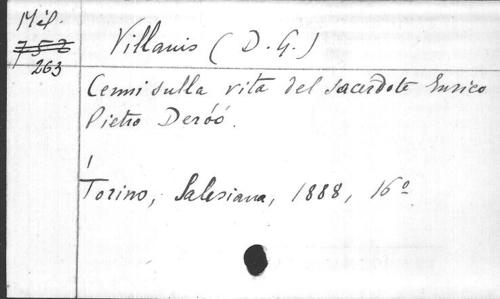 Mél.
752
263
Villanis (D. G.)
Cenni sulla vita del sacerdote Enrico
Pietro Deróò.
1
Torino, Salesiana, 1888, 16º